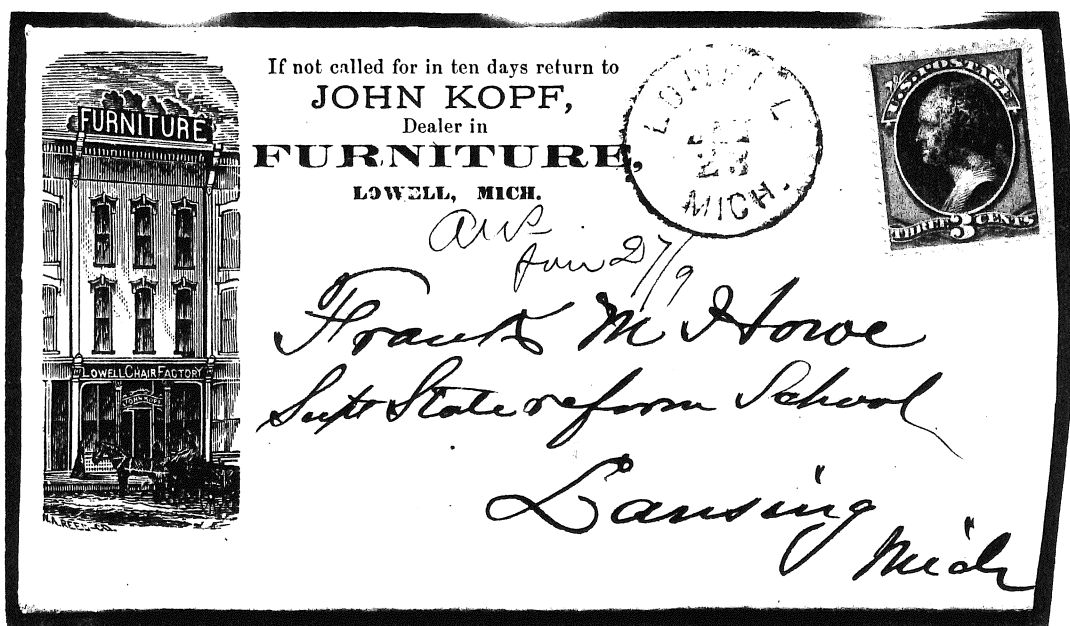 FURNITURE
LOWELL CHAIR FACTORY
JOHN KOPF
If not called for in ten days return to
JOHN KOPF,
Dealer in
FURNITURE,
LOWELL, MICH.
LOWELL
23
MICH.
U.S. POSTAGE
THREE 3 CENTS
Ans
Jan 27/9
Frank M Howe
Supt State reform School
Lansing
Mich